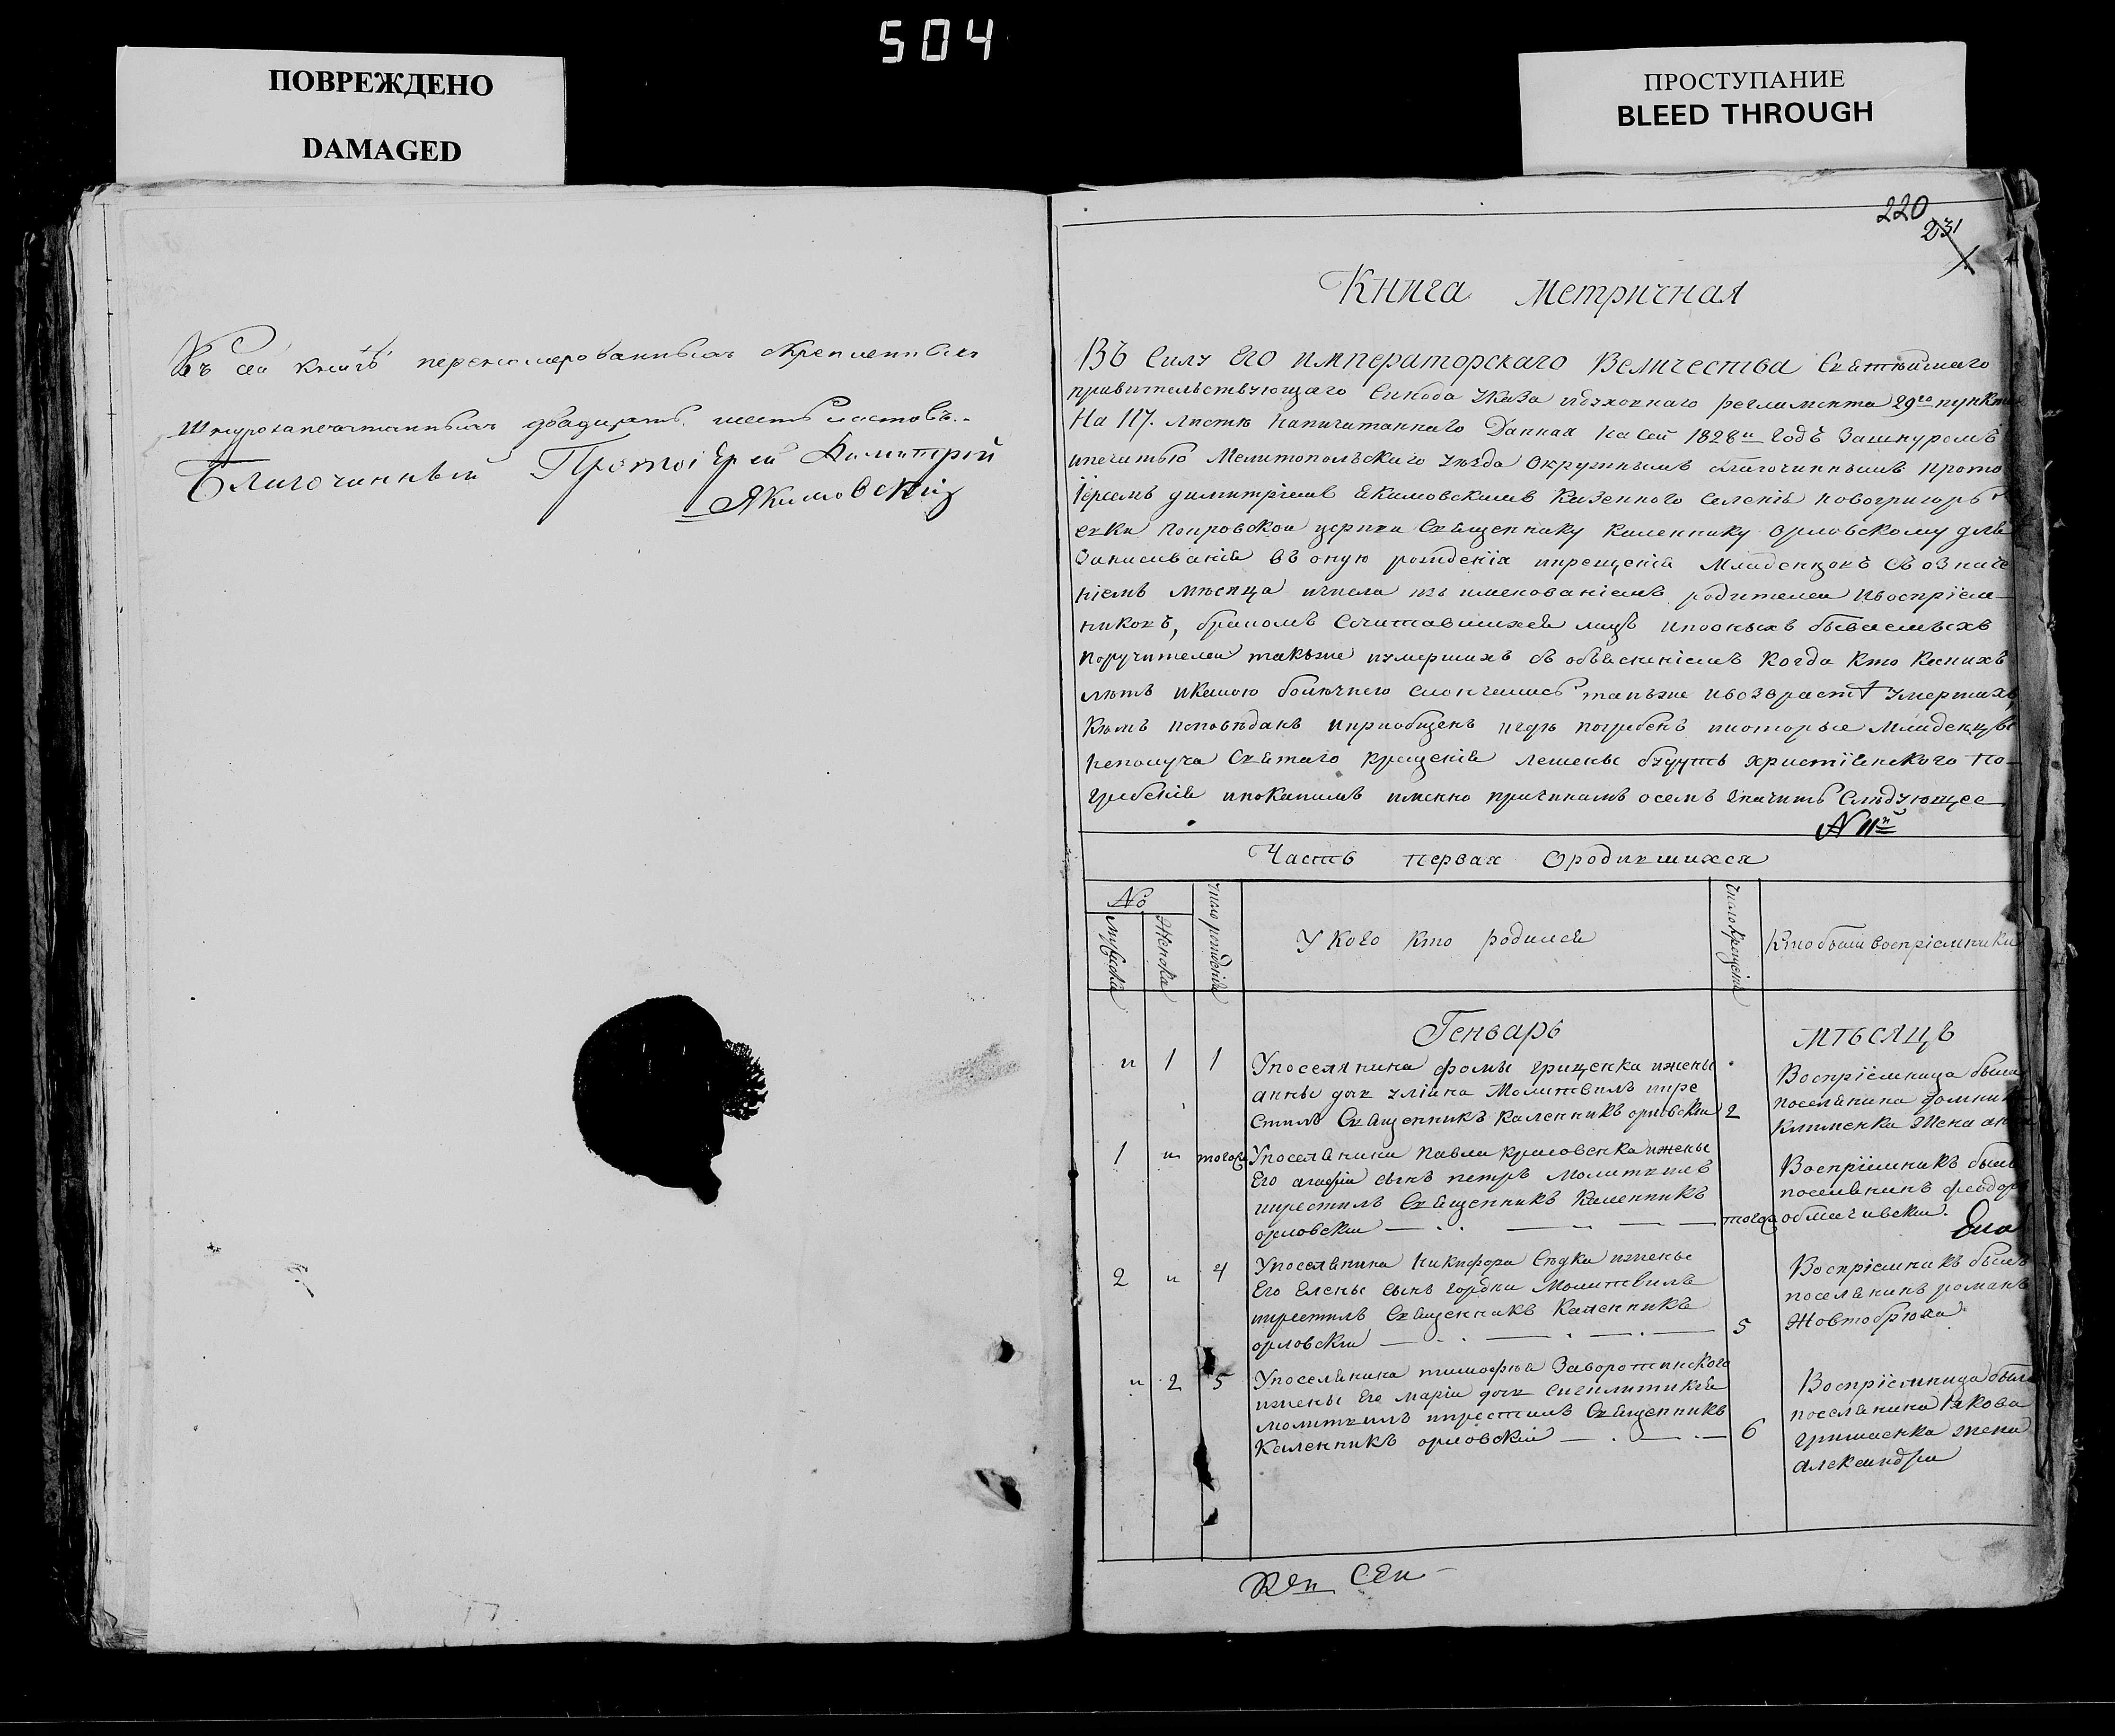 504
ПОВРЕЖДЕНО
DAMAGED
ПРОСТУПАНИЕ
BLEED THROUGH
Въ сей книгѣ перенумерованныхъ скрепленныхъ
шнурозапечатанныхъ двадцать шесть листовъ.
Благочинный Протоіерей Димитрій
Якимовскій
220
231
Книга Метричная
Въ Силу Его императорскаго Величества Святѣйшаго
правительствующаго Синода Указа идуховнаго регламента 29го пункта
На 117. листѣ напечатаннаго Данная на сей 1828й годъ Зашнуромъ
ипечатью Мелитопольскаго уѣзда Окружнымъ благочиннымъ прото
Іереемъ димитріемъ Екимовскимъ Казенного Селенія новогригорь
евки Покровской церкви Священнику Каленнику Орловскому для
Записыванія въ оную рожденія икрещенія Младенцовъ Съ означе
ніемъ мѣсяца ичисла изъ именованіемъ родителей ивоспріем
никовъ, бракомъ Сочитавшихся лицъ ипооныхъ бываемыхъ
поручителей такъже иумершихъ съ объясненіемъ Когда Кто
лѣтъ икакою болезнею скончались такъже ивозврастѣ умершихъ,
Кѣмъ исповѣданъ иприобщенъ игдѣ погребенъ икоторые младенцы
неполуча Святаго крещенія лешены будутъ христіянского по
гребенія ипокакимъ именно причинамъ осемъ значитъ Слѣдующее
N 11й
Часть первая Ородившихся
No
мужска
Женска
число рожденія
У Кого Кто родился
Число крещенія
Ктобыли воспріемники
Генварь
Мѣсяцъ
" 1 1
Упоселянина Фомы грищенка ижены
анны дочь уліяна Молитвилъ икре
стилъ Священникъ Каленникъ орловскій 2
Воспріемница была
поселянина
Клименка Жена
1 " тогож
Упоселянина Павла ижены
Его агафіи сынъ петръ Молитвилъ
икрестилъ Священникъ Каленникъ
орловскій тогож
Воспріемникъ былъ
поселянинъ феодоръ
2 " 4
Упоселянина Никифора Сѣдка ижены
Его Елены сынъ гордѣй Молитвилъ
икрестилъ Священникъ Каленникъ
орловскій 5
Воспріемникъ былъ
поселянинъ романъ
Жовтобрюха
" 2 5
Упоселянина тимофѣя Заворотинского
ижены Его Маріи дочь Сигклитикія
молитвилъ икрестилъ Священникъ
Каленникъ орловскій 6
Воспріемница была
поселянина Іякова
гришаенка жена
Александра